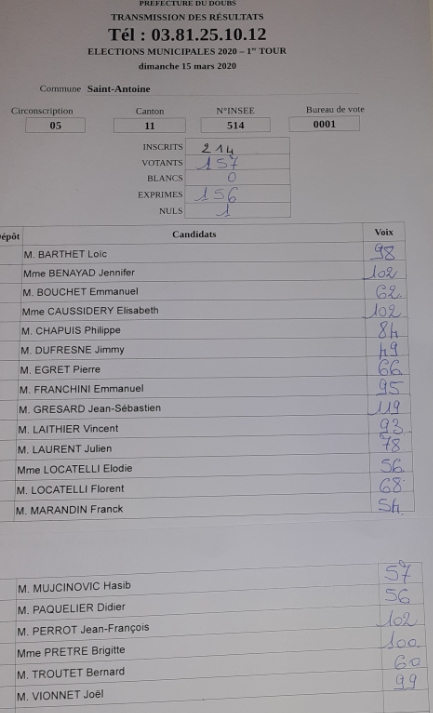 PREFECTURE DU DOUBS
TRANSMISSION DES RÉSULTATS
Tél : 03.81.25.10.12
ELECTIONS MUNICIPALES 2020 – 1er TOUR
dimanche 15 mars 2020
Commune Saint-Antoine
Circonscription Canton N°INSEE Bureau de vote
05 11 514 0001
INSCRITS 214
VOTANTS 157
BLANCS 0
EXPRIMES 156
NULS 1
Dépôt Candidats Voix
M. BARTHET Loïc 98
Mme BENAYAD Jennifer 102
M. BOUCHET Emmanuel 62
Mme CAUSSIDERY Elisabeth 102
M. CHAPUIS Philippe 84
M. DUFRESNE Jimmy 49
M. EGRET Pierre 66
M. FRANCHINI Emmanuel 95
M. GRESARD Jean-Sébastien 119
M. LAITHIER Vincent 93
M. LAURENT Julien 78
Mme LOCATELLI Elodie 56
M. LOCATELLI Florent 68
M. MARANDIN Franck 54
M. MUJCINOVIC Hasib 57
M. PAQUELIER Didier 56
M. PERROT Jean-François 102
Mme PRETRE Brigitte 100
M. TROUTET Bernard 60
M. VIONNET Joël 99